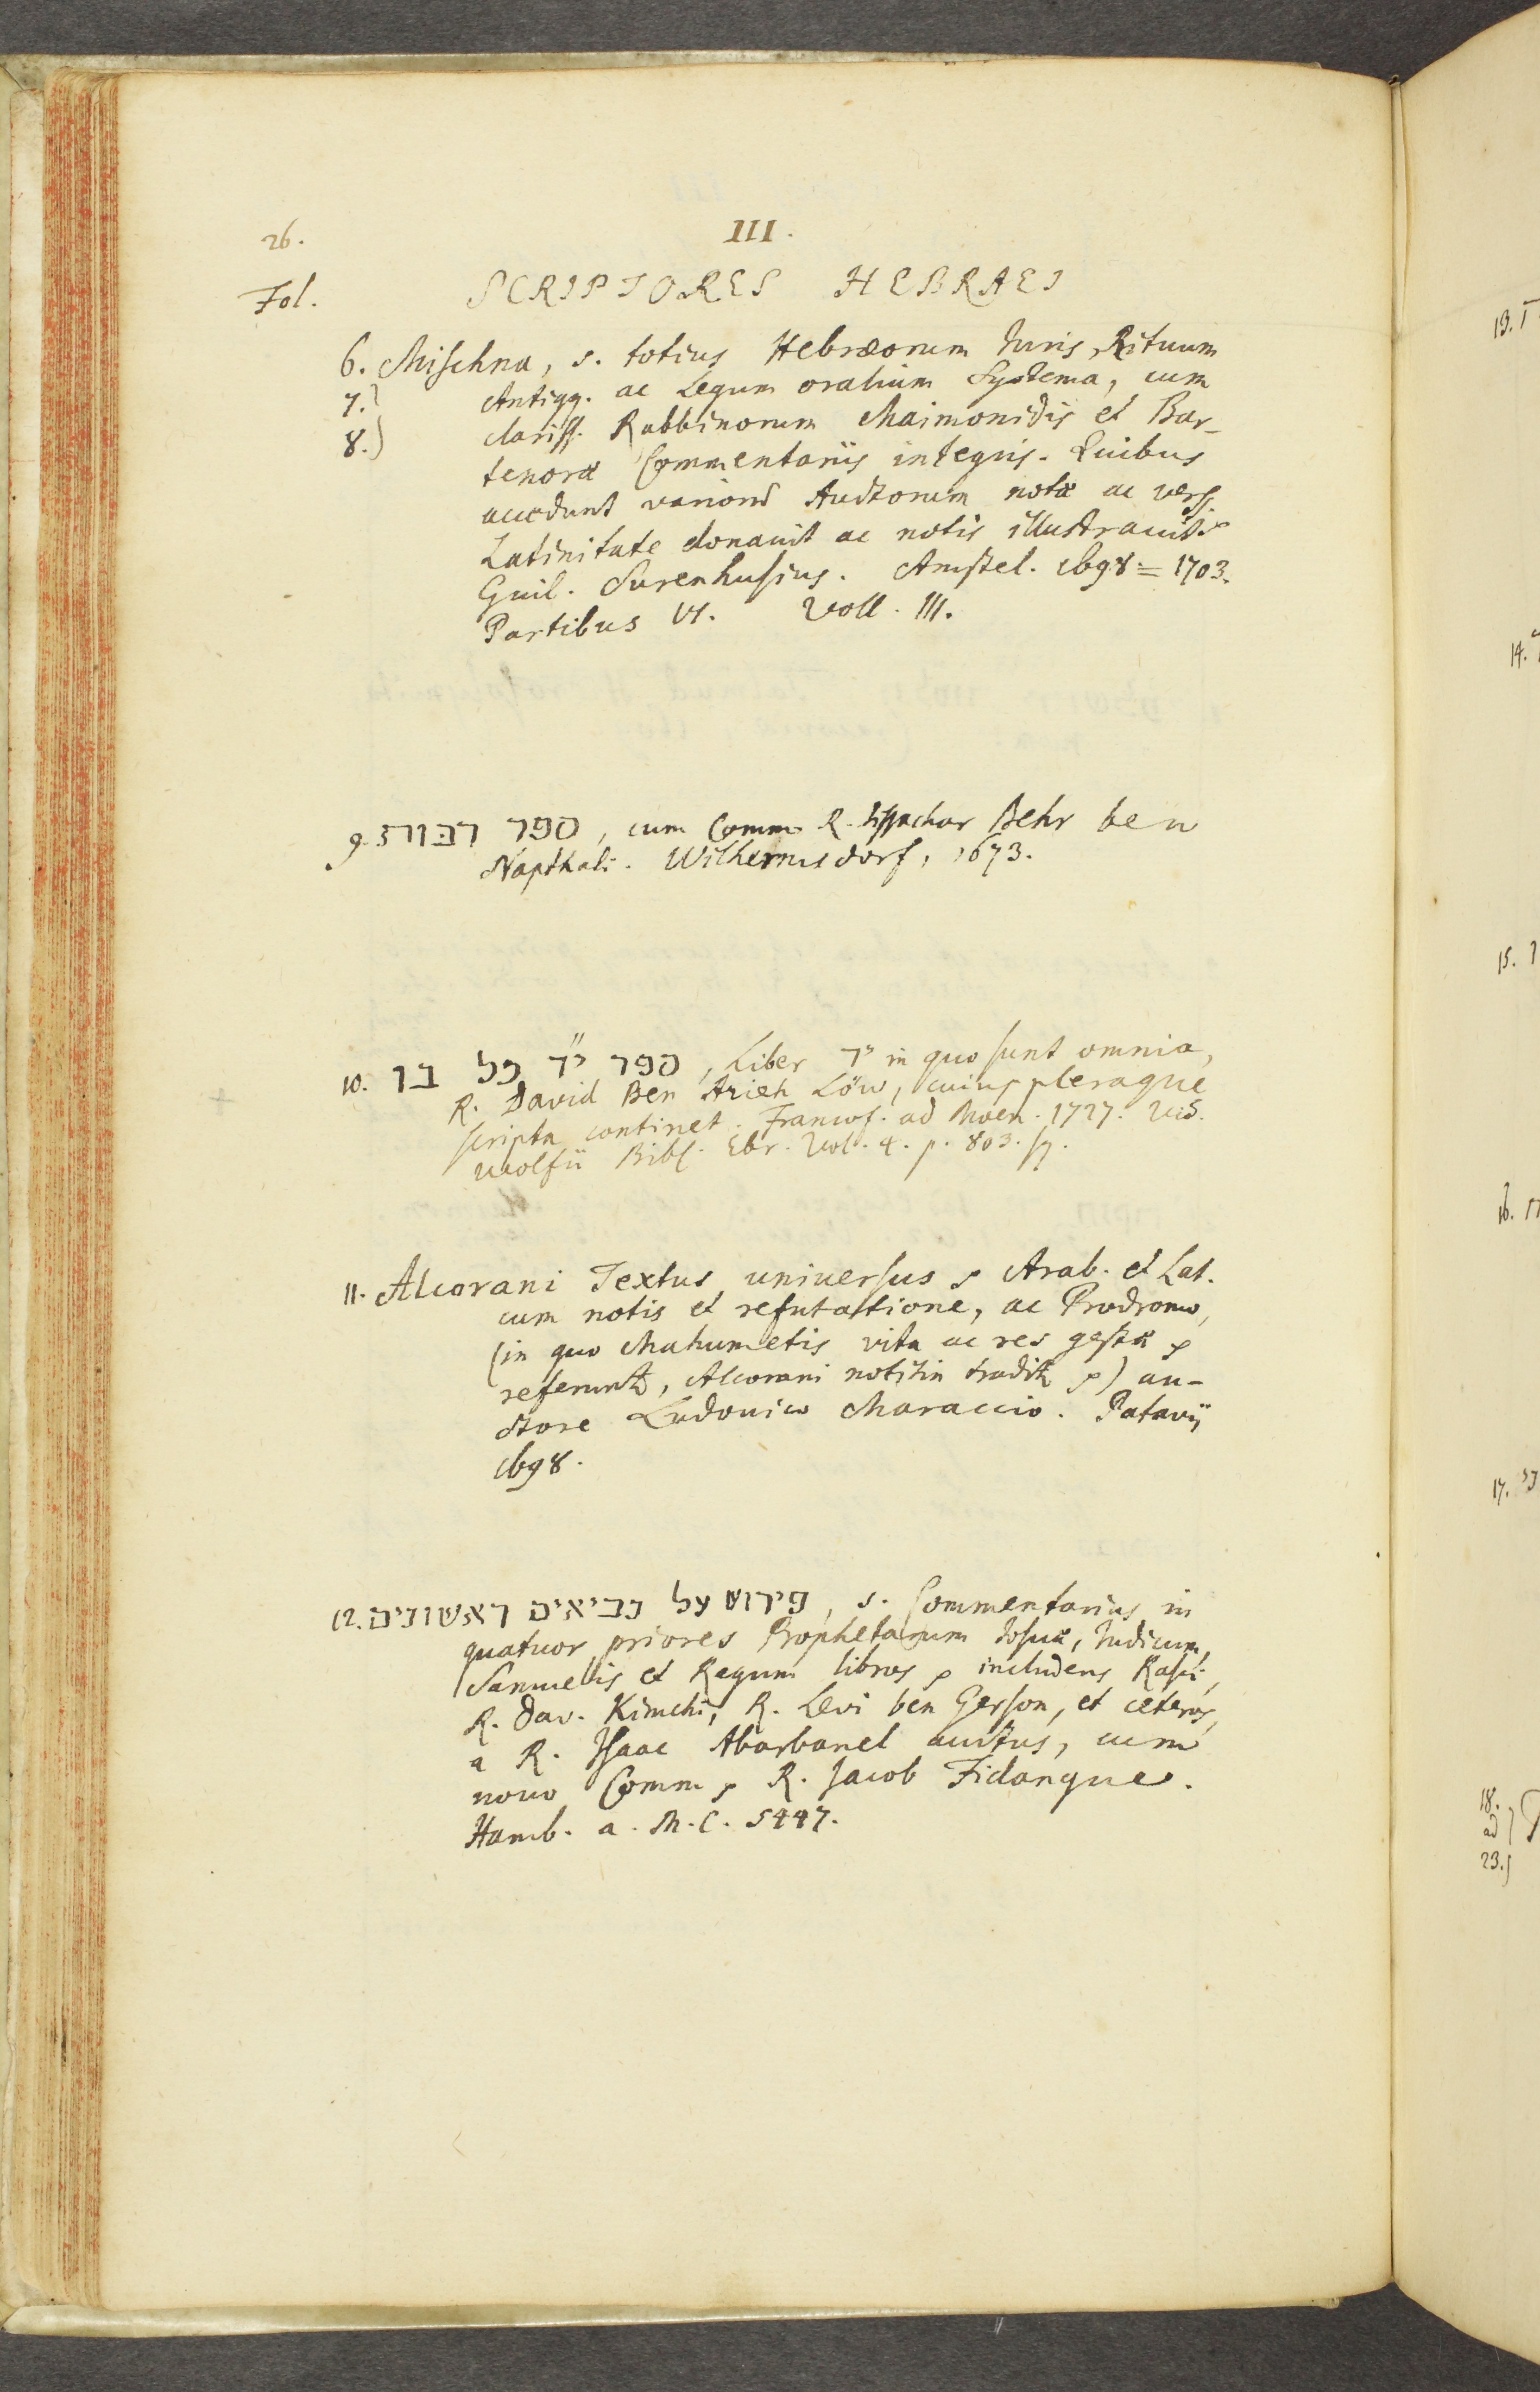 26.
III.
Fol.
SCRIPTORES HEBRAEI
6. Mischna, s. totius Hebræorum Iuris, Rituum
7.) Antiqq. ac Legum oralium Systema, cum
8.) clariss. Rabbinorum Maimonidis et Bar-
tenoræ Commentariis integris. Quibus
accedunt variorū Auctorum notæ ac verss.
Latinitate donauit ac notis illustrauit
Guil. Surenhusius. Amstel. cIↄ98 = 1703.
Partibus VI. Voll. III.
9. ספר רבות, cum Comm. R. Issachar Behr ben
Napthali. Wilhermsdorf, 1673.
10. ספר י"ד כל בו, Liber י"ד in quo sunt omnia,
R. David Ben Arieh Löw, cuius pleraque
scripta continet. Francof. ad Moen. 1727. vid.
Wolfii Bibl. Ebr. Vol. 4. p. 803. sq.
11. Alcorani Textus universus Arab. et Lat.
cum notis et refutatione, ac Prodromo,
(in quo Mahumetis vita ac res gestæ
referunt, Alcorani notitia tradit) au-
ctore Ludouico Maraccio. Patavij
cIↄ98.
12. פירוש על נביאים ראשונים, s. Commentarius in
quatuor priores Prophetarum Iosuæ, Iudicum,
Samuelis et Regum libros includens Rasi,
R. Dav. Kimchi, R. Levi ben Gerson, et ceteros,
a R. Isaac Abarbanel auctus, cum
nouo Comm. R. Jacob Fidanque.
Hamb. a. M.C. 5447.
13.
14.
15.
16.
17.
18.
ad
23.